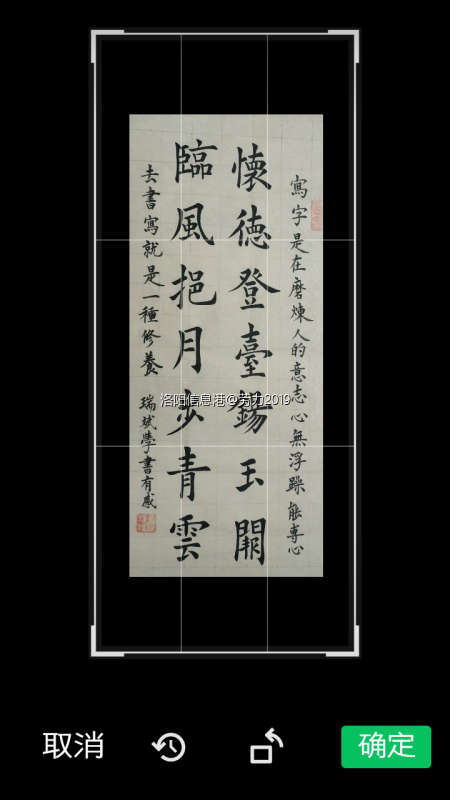 寫字是在磨煉人的意志心無浮躁能專心
懷德登臺錫玉關
臨風挹月步青雲
去書寫就是一種修養 瑞斌學書有感
洛阳信息港@劳力2019
取消
确定